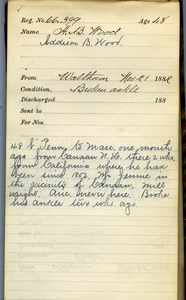 Reg. No. 66,399 Age 68
Name A. B. Wood
Addison B. Wood.
From Waltham Nov. 21 188
Condition, Broken ankle
Discharged 188
Sent to
For Nos.
48 V. Penny to Mass. one month
ago from Canaan N.H. there 2 wks
from California where he had
been since 1852. Wf Jennie in
the vicinity of Canaan. Mill
wright. One never here. Broke
his ankle two wks. ago.